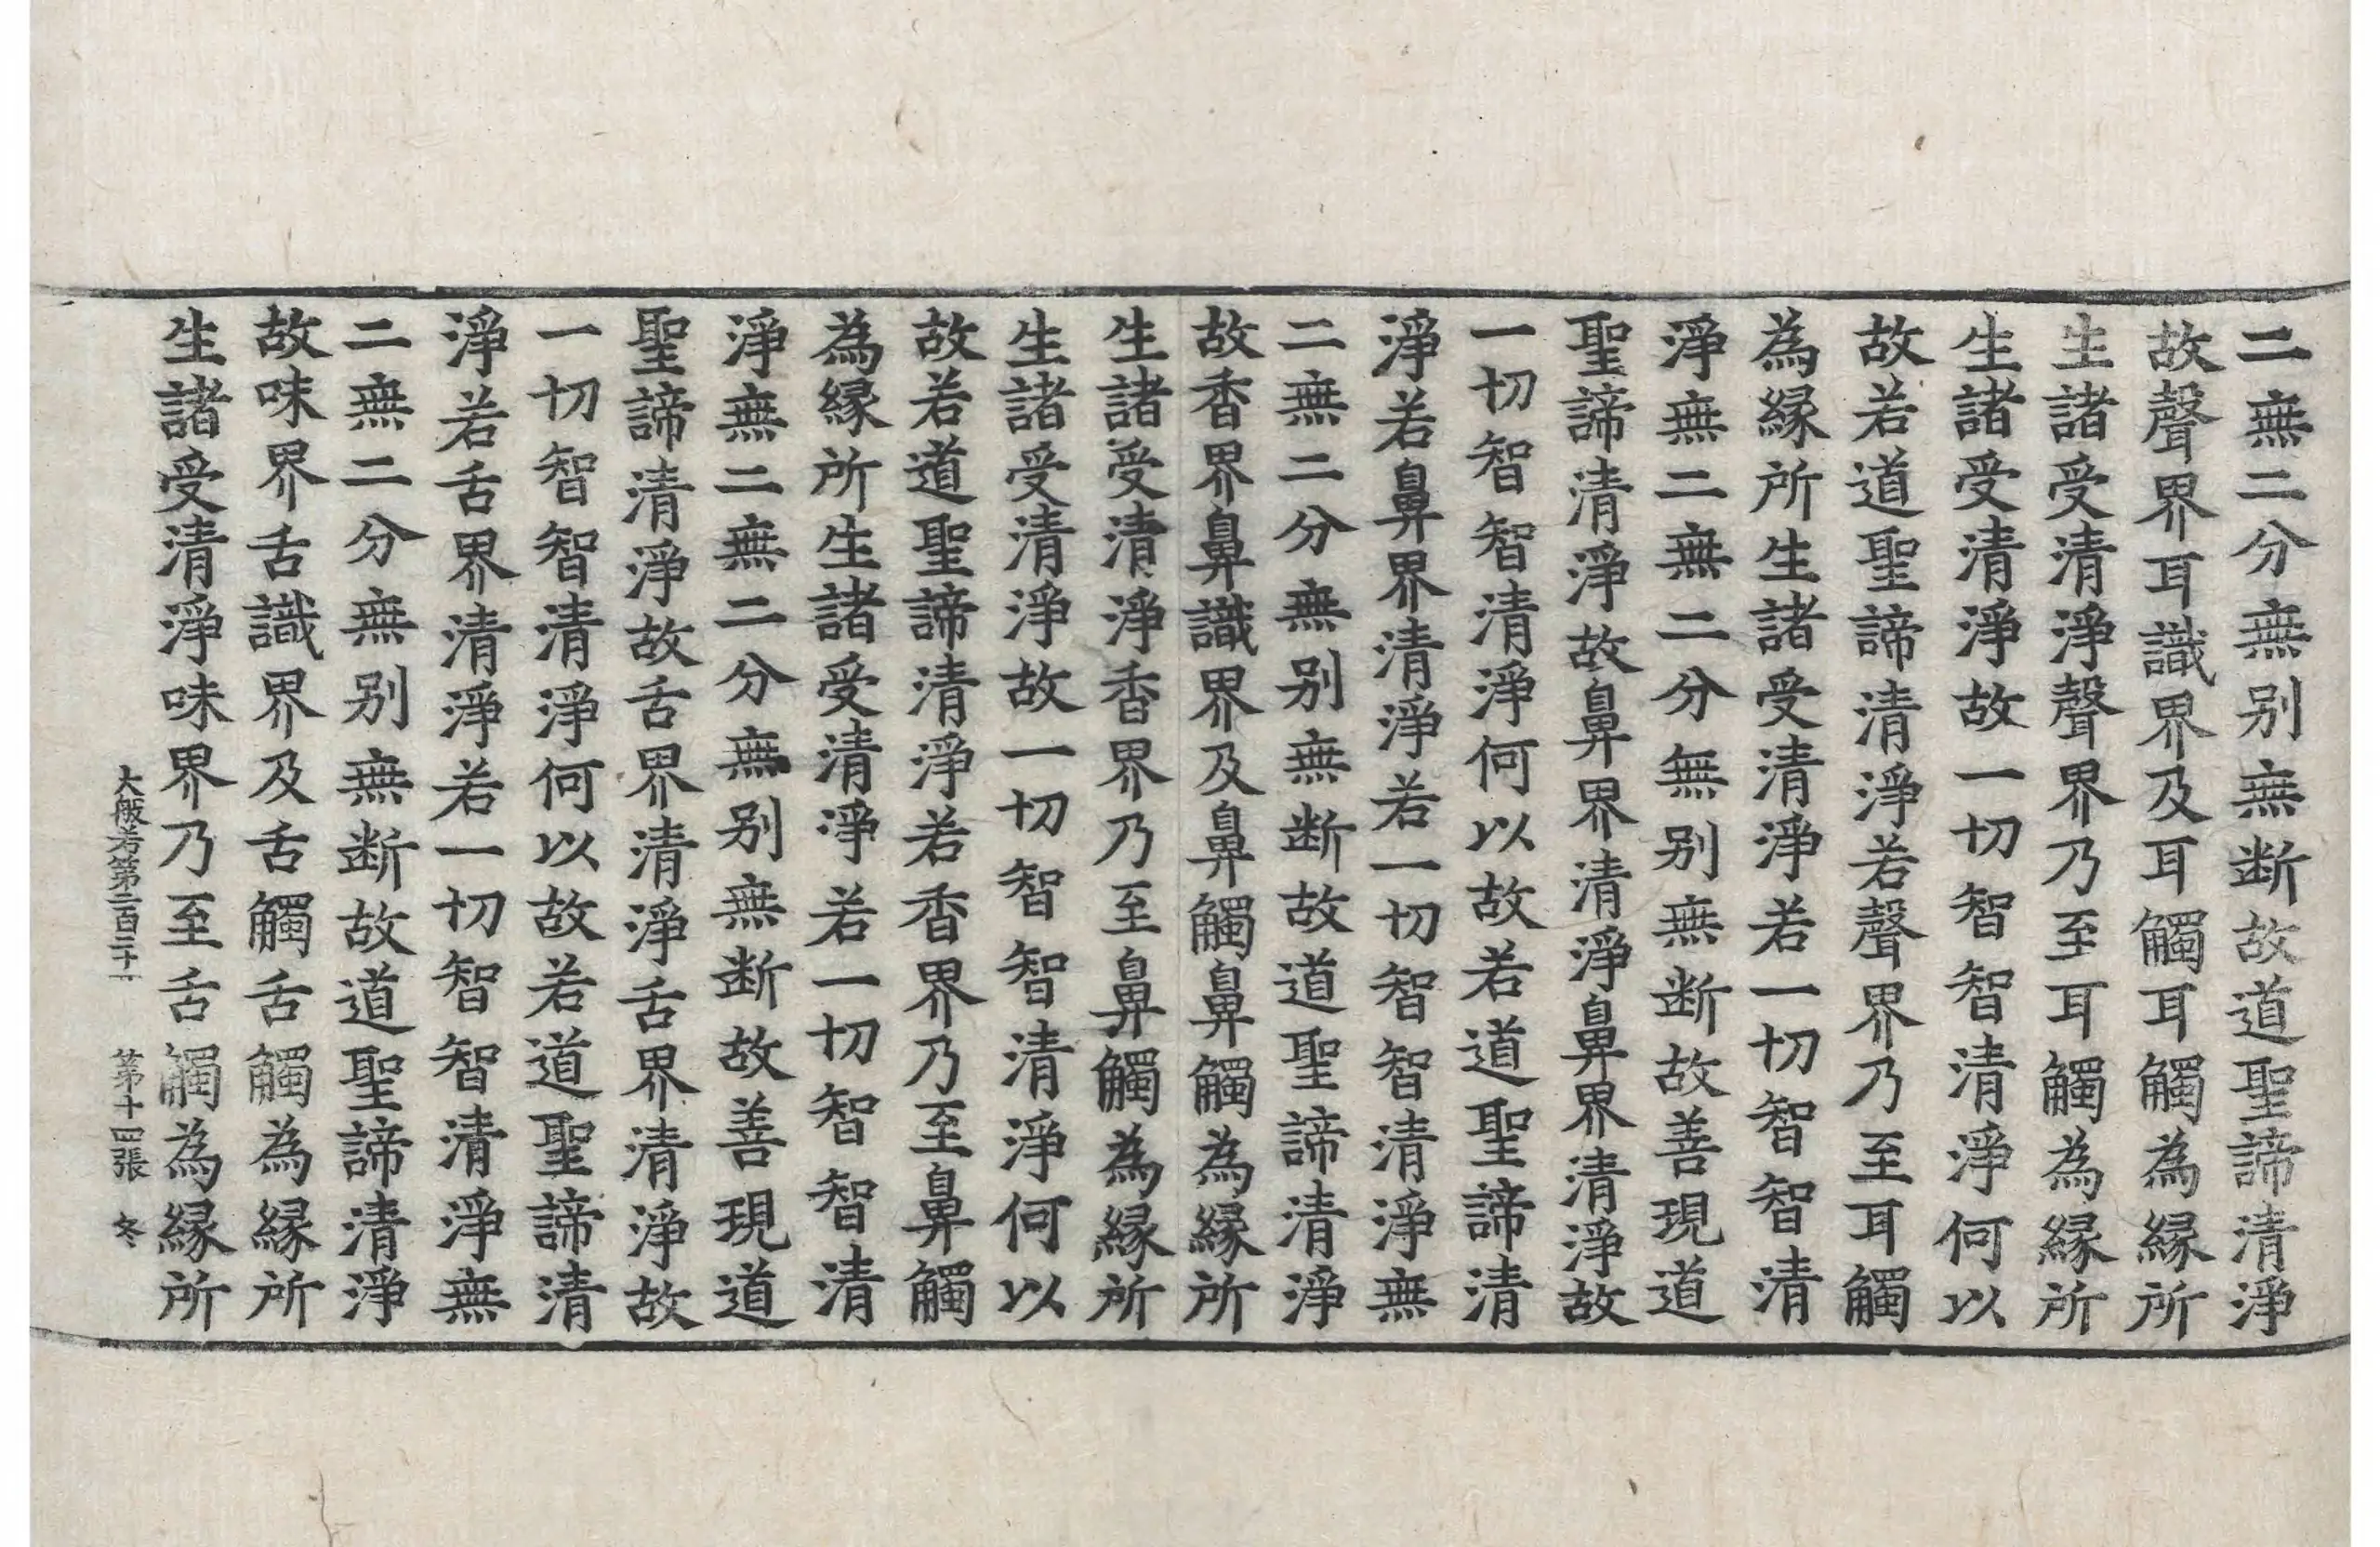 二無二分無別無断故道聖諦清淨
故聲界耳識界及耳觸耳觸為縁所
生諸受清淨聲界乃至耳觸為縁所
生諸受清淨故一切智智清淨何以
故若道聖諦清淨若聲界乃至耳觸
為縁所生諸受清淨若一切智智清
淨無二無二分無別無断故善現道
聖諦清淨故鼻界清淨鼻界清淨故
一切智智清淨何以故若道聖諦清
淨若鼻界清淨若一切智智清淨無
二無二分無別無断故道聖諦清淨
故香界鼻識界及鼻觸鼻觸為縁所
生諸受清淨香界乃至鼻觸為縁所
生諸受清淨故一切智智清淨何以
故若道聖諦清淨若香界乃至鼻觸
為縁所生諸受清淨若一切智智清
淨無二無二分無別無断故善現道
聖諦清淨故舌界清淨舌界清淨故
一切智智清淨何以故若道聖諦清
淨若舌界清淨若一切智智清淨無
二無二分無別無断故道聖諦清淨
故味界舌識界及舌觸舌觸為縁所
生諸受清淨味界乃至舌觸為縁所
大般若第二百二十一 第十四張 冬